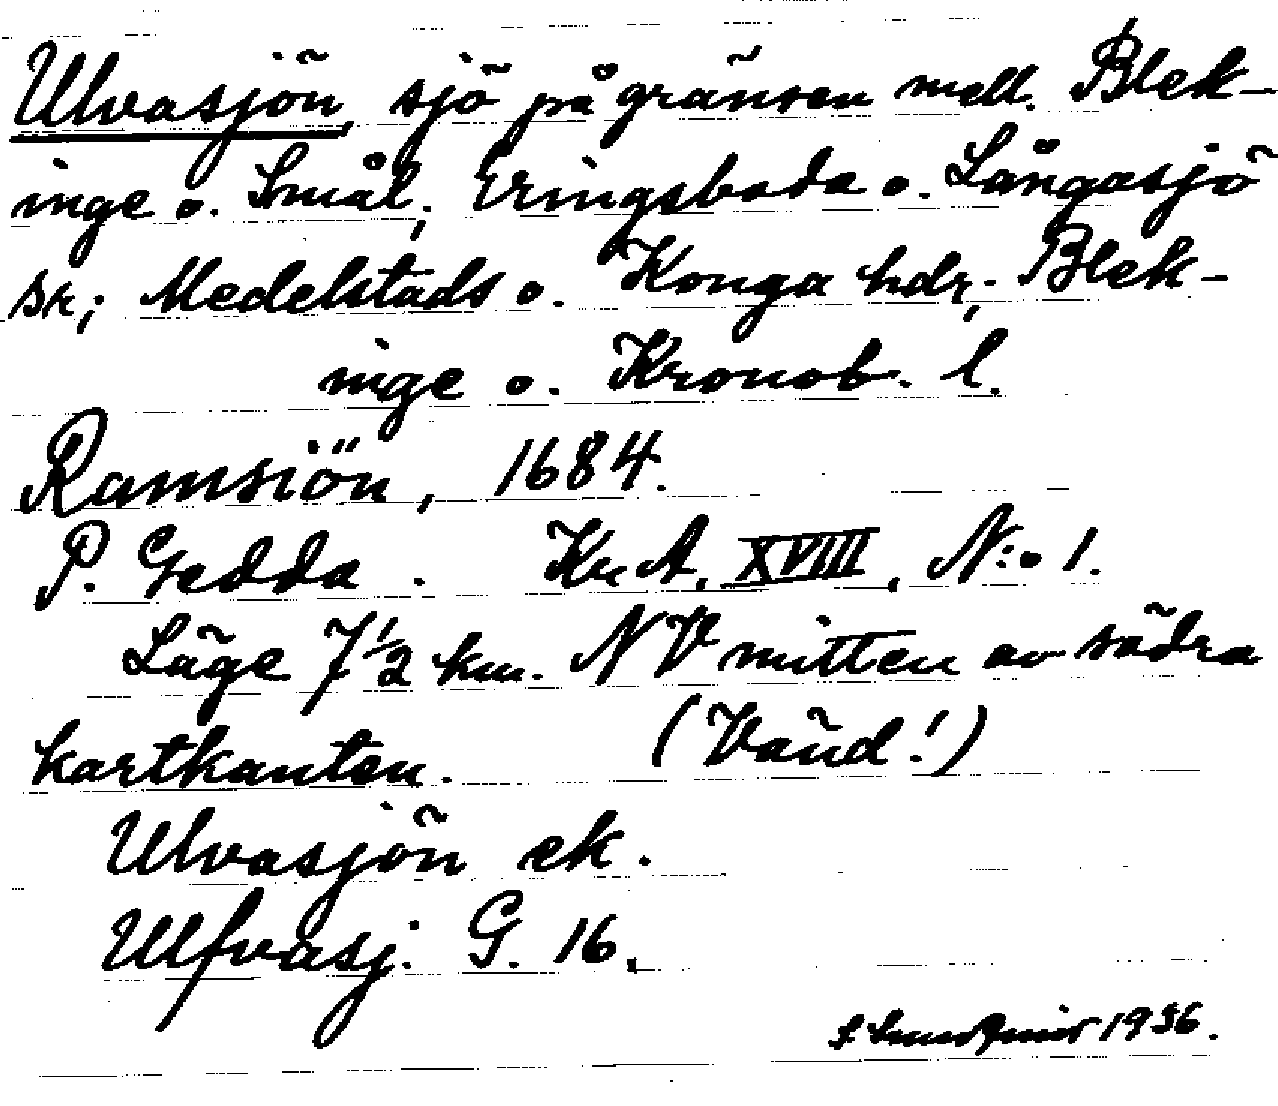 Ulvasjön, sjö på gränsen mell. Blek-
inge o. Smål., Eringsboda o. Långasjö
sr; Medelstads o. Konga hdr. Blek-
inge o. Kronob. l.
Ramsiön, 1684.
P. Gedda. Kr A, XVIII, N:o 1.
Läge 7 1/2 km. NV mitten av södra
kartkanten. (Vänd!)
Ulvasjön ek.
Ulfvasj. G. 16.
1936.